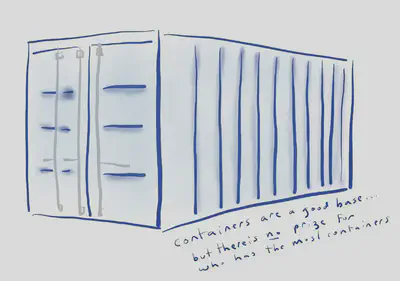 containers are a good base...
but thereis no prize for
who has the most containers